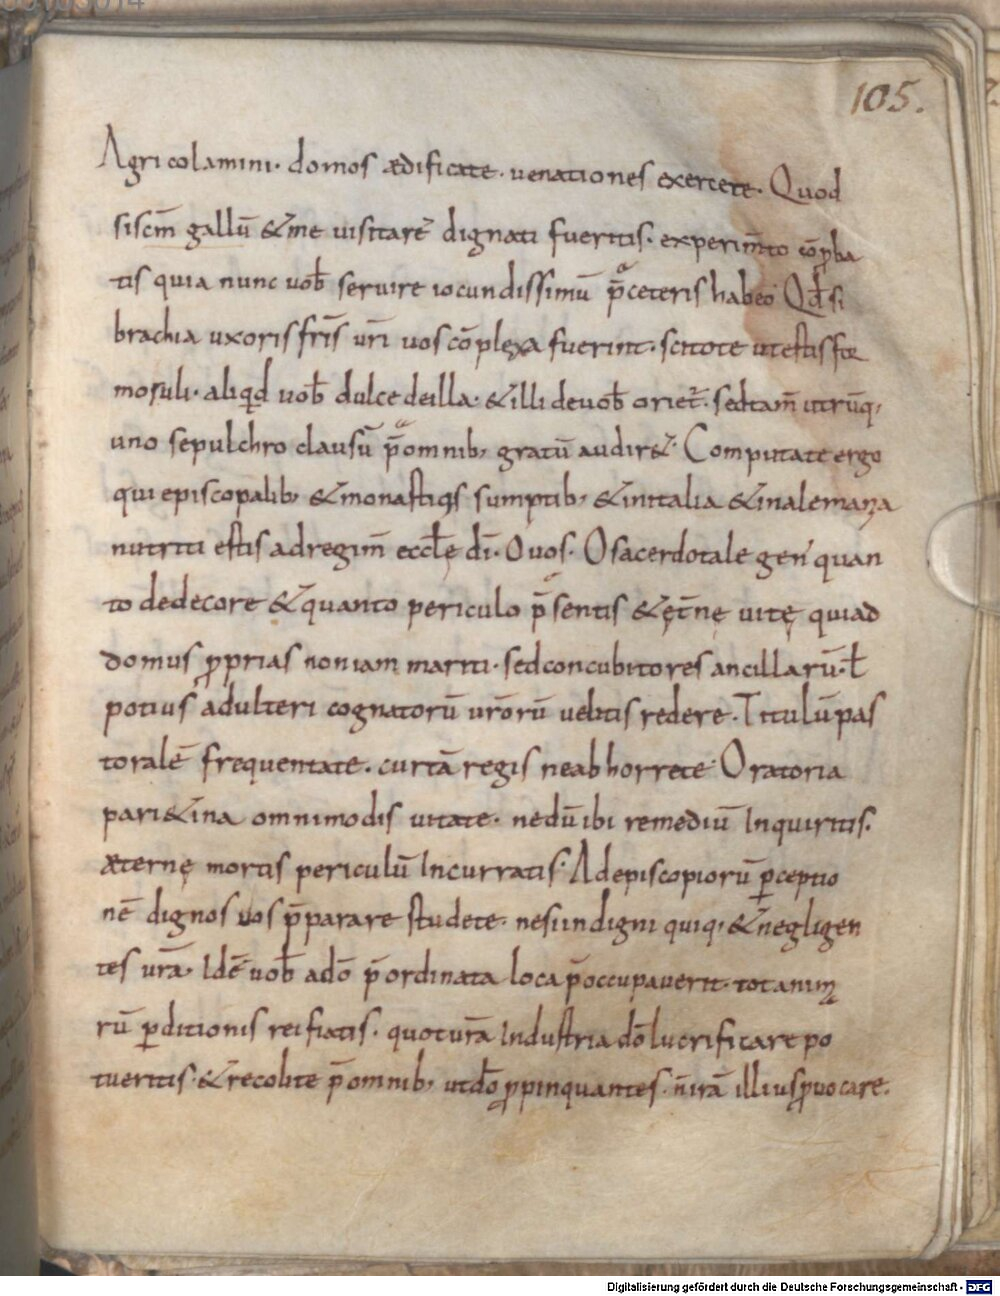 105.
Agricolamini· domos ædificate· uenationes exercete· Quod
si scm̄ gallū &me uisitare dignati fueritis· experim̄to cōꝓba
tis quia nunc uob̄ seruire iocundissimū p̄ceteris habeo Qd̄ si
brachia uxoris fr̄is ur̄i uos cōplexa fuerint· scitote ut estis for
mosuli· aliqd uob̄ dulce deilla· &illi deuob̄ oriet᷑· sedtam̄ utrūq;
uno sepulchro clausū p̄omnib; gratū audir&᷑· Computate ergo
qui episcopalib; &monastiqs sumptib; &initalia &inalemania
nutriti estis adregim̄ eccl̄ę dī· O uos· O sacerdotale gen' quan
to dedecore &quanto periculo p̄sentis &ęt̄nę uitę qui ad
domus ꝓprias non iam mariti· sed concubitores ancillarū· ł
potius adulteri cognatorū ur̄orū uelitis redere· Titulū pas
toralē frequentate· curtā regis ne abhorrete· Oratoria
pari&ina omnimodis uitate· nedū ibi remediū Inquiritis·
æternę mortis periculū Incurratis· Ad episcopiorū ꝑceptio
nē dignos uos p̄parare studete· nesi indigni quiq; &negligen
tes ur̄a· Idē uob̄ adō p̄ordinata loca p̄occupauerit· tot animꝝ
rū ꝑditionis rei fiatis· quot ur̄a Industria dō lucrificare po
tueritis· &recolite p̄omnib; utdō ꝓpinquantes· n̄ irā illius ꝓuocare·
Digitalisierung gefördert durch die Deutsche Forschungsgemeinschaft - DFG